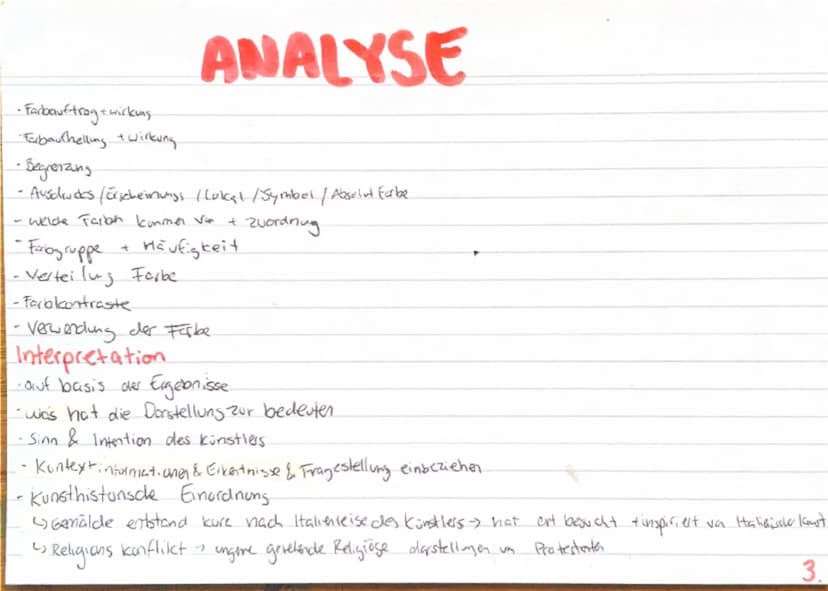 ANALYSE
- Farbauftrag + wirkung
- Farbaufhellung + Wirkung
- Begrenzung
- Ausdrucks / Erscheinungs / Lokal / Symbol / Absolut Farbe
- welche Farben kommen vor + zuordnung
- Farbgruppe + Häufigkeit
- Verteilung Farbe
- Farbkontraste
- Verwendung der Farbe
Interpretation
- auf basis der Ergebnisse
- was hat die Darstellung zur bedeuten
- Sinn & Intention des Künstlers
- Kontextinformationen & Erkentnisse & Fragestellung einbeziehen
- Kunsthistorische Einordnung
↳ Gemälde entstand kurz nach Italienreise des Künstlers → hat ort besucht + inspiriert von Italienische Kunst
↳ Religions konflikt → ungerne Religiöse darstellungen von Protestanten
3.